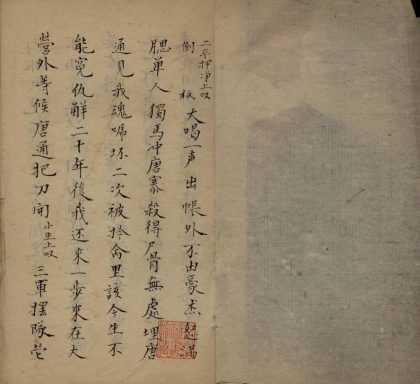 二卒押净上叹
倒板 大唱一声出帳外不由豪杰怒满
腮单人獨馬冲唐寨殺得尸骨無處埋唐
通見我魂嚇坏二次被擒命里該今生不
能寃仇解二十年後我还來一步來在大
營外等候唐通把刀開 小生上叹 三軍擺隊